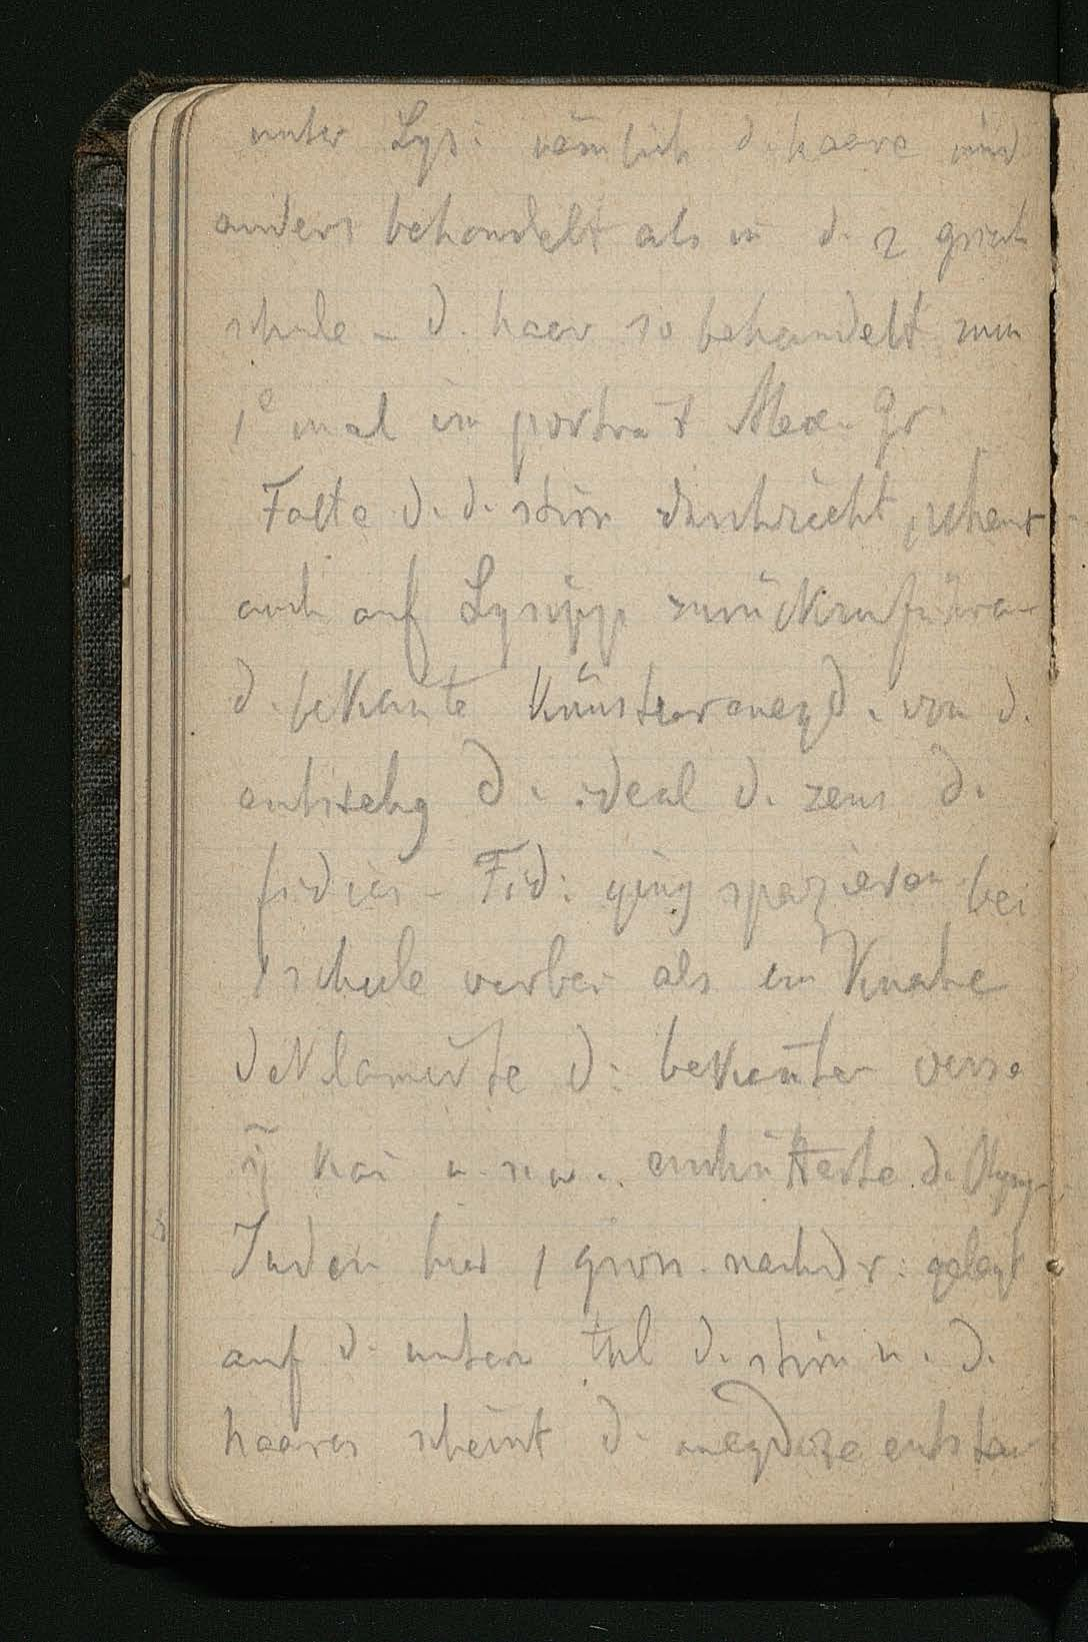 unter Lys: nämlich d. haare sind
anders behandelt als in d. 2 griech
schule – d. haar so behandelt zum
1e mal im porträt Alex. Gr
Falte d. d. stirn scheint
auch auf Lysipp zurückzuführen
d. bekante Künstleranegd. von d.
entstehg d. ideal d. zeus d.
fidias – Fid: ging spazieren bei
1 schule vorbei als ein Knabe
deklamirte d: bekanten verse
ἦ και u. s. w. erschütterte d. Olymp
Indem hier 1 gross. nachdr: gelegt
auf d. untern teil d. stirn u. d.
haares scheint d. anegdote entstan